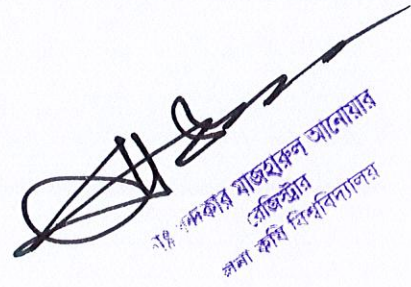 খন্দকার মাজহারুল আনোয়ার
রেজিস্ট্রার
কৃষি বিশ্ববিদ্যালয়